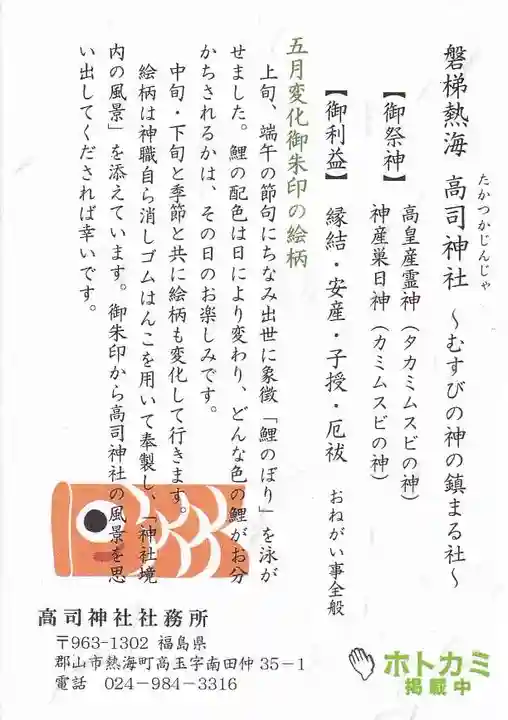 磐梯熱海 高司神社 ~むすびの神の鎮まる社~
たかつかじんじゃ
【御祭神】 高皇産霊神(タカミムスビの神)
神産巣日神(カミムスビの神)
【御利益】 縁結・安産・子授・厄祓 おねがい事全般
五月変化御朱印の絵柄
上旬、端午の節句にちなみ出世に象徴「鯉のぼり」を泳が
せました。鯉の配色は日により変わり、どんな色の鯉がお分
かちされるかは、その日のお楽しみです。
中旬・下旬と季節と共に絵柄も変化して行きます。
絵柄は神職自ら消しゴムはんこを用いて奉製し、「神社境
内の風景」を添えています。御朱印から高司神社の風景を思
い出してくだされば幸いです。
高司神社社務所
〒963-1302 福島県
郡山市熱海町高玉字南田仲35-1
電話 024-984-3316
ホトカミ
掲載中